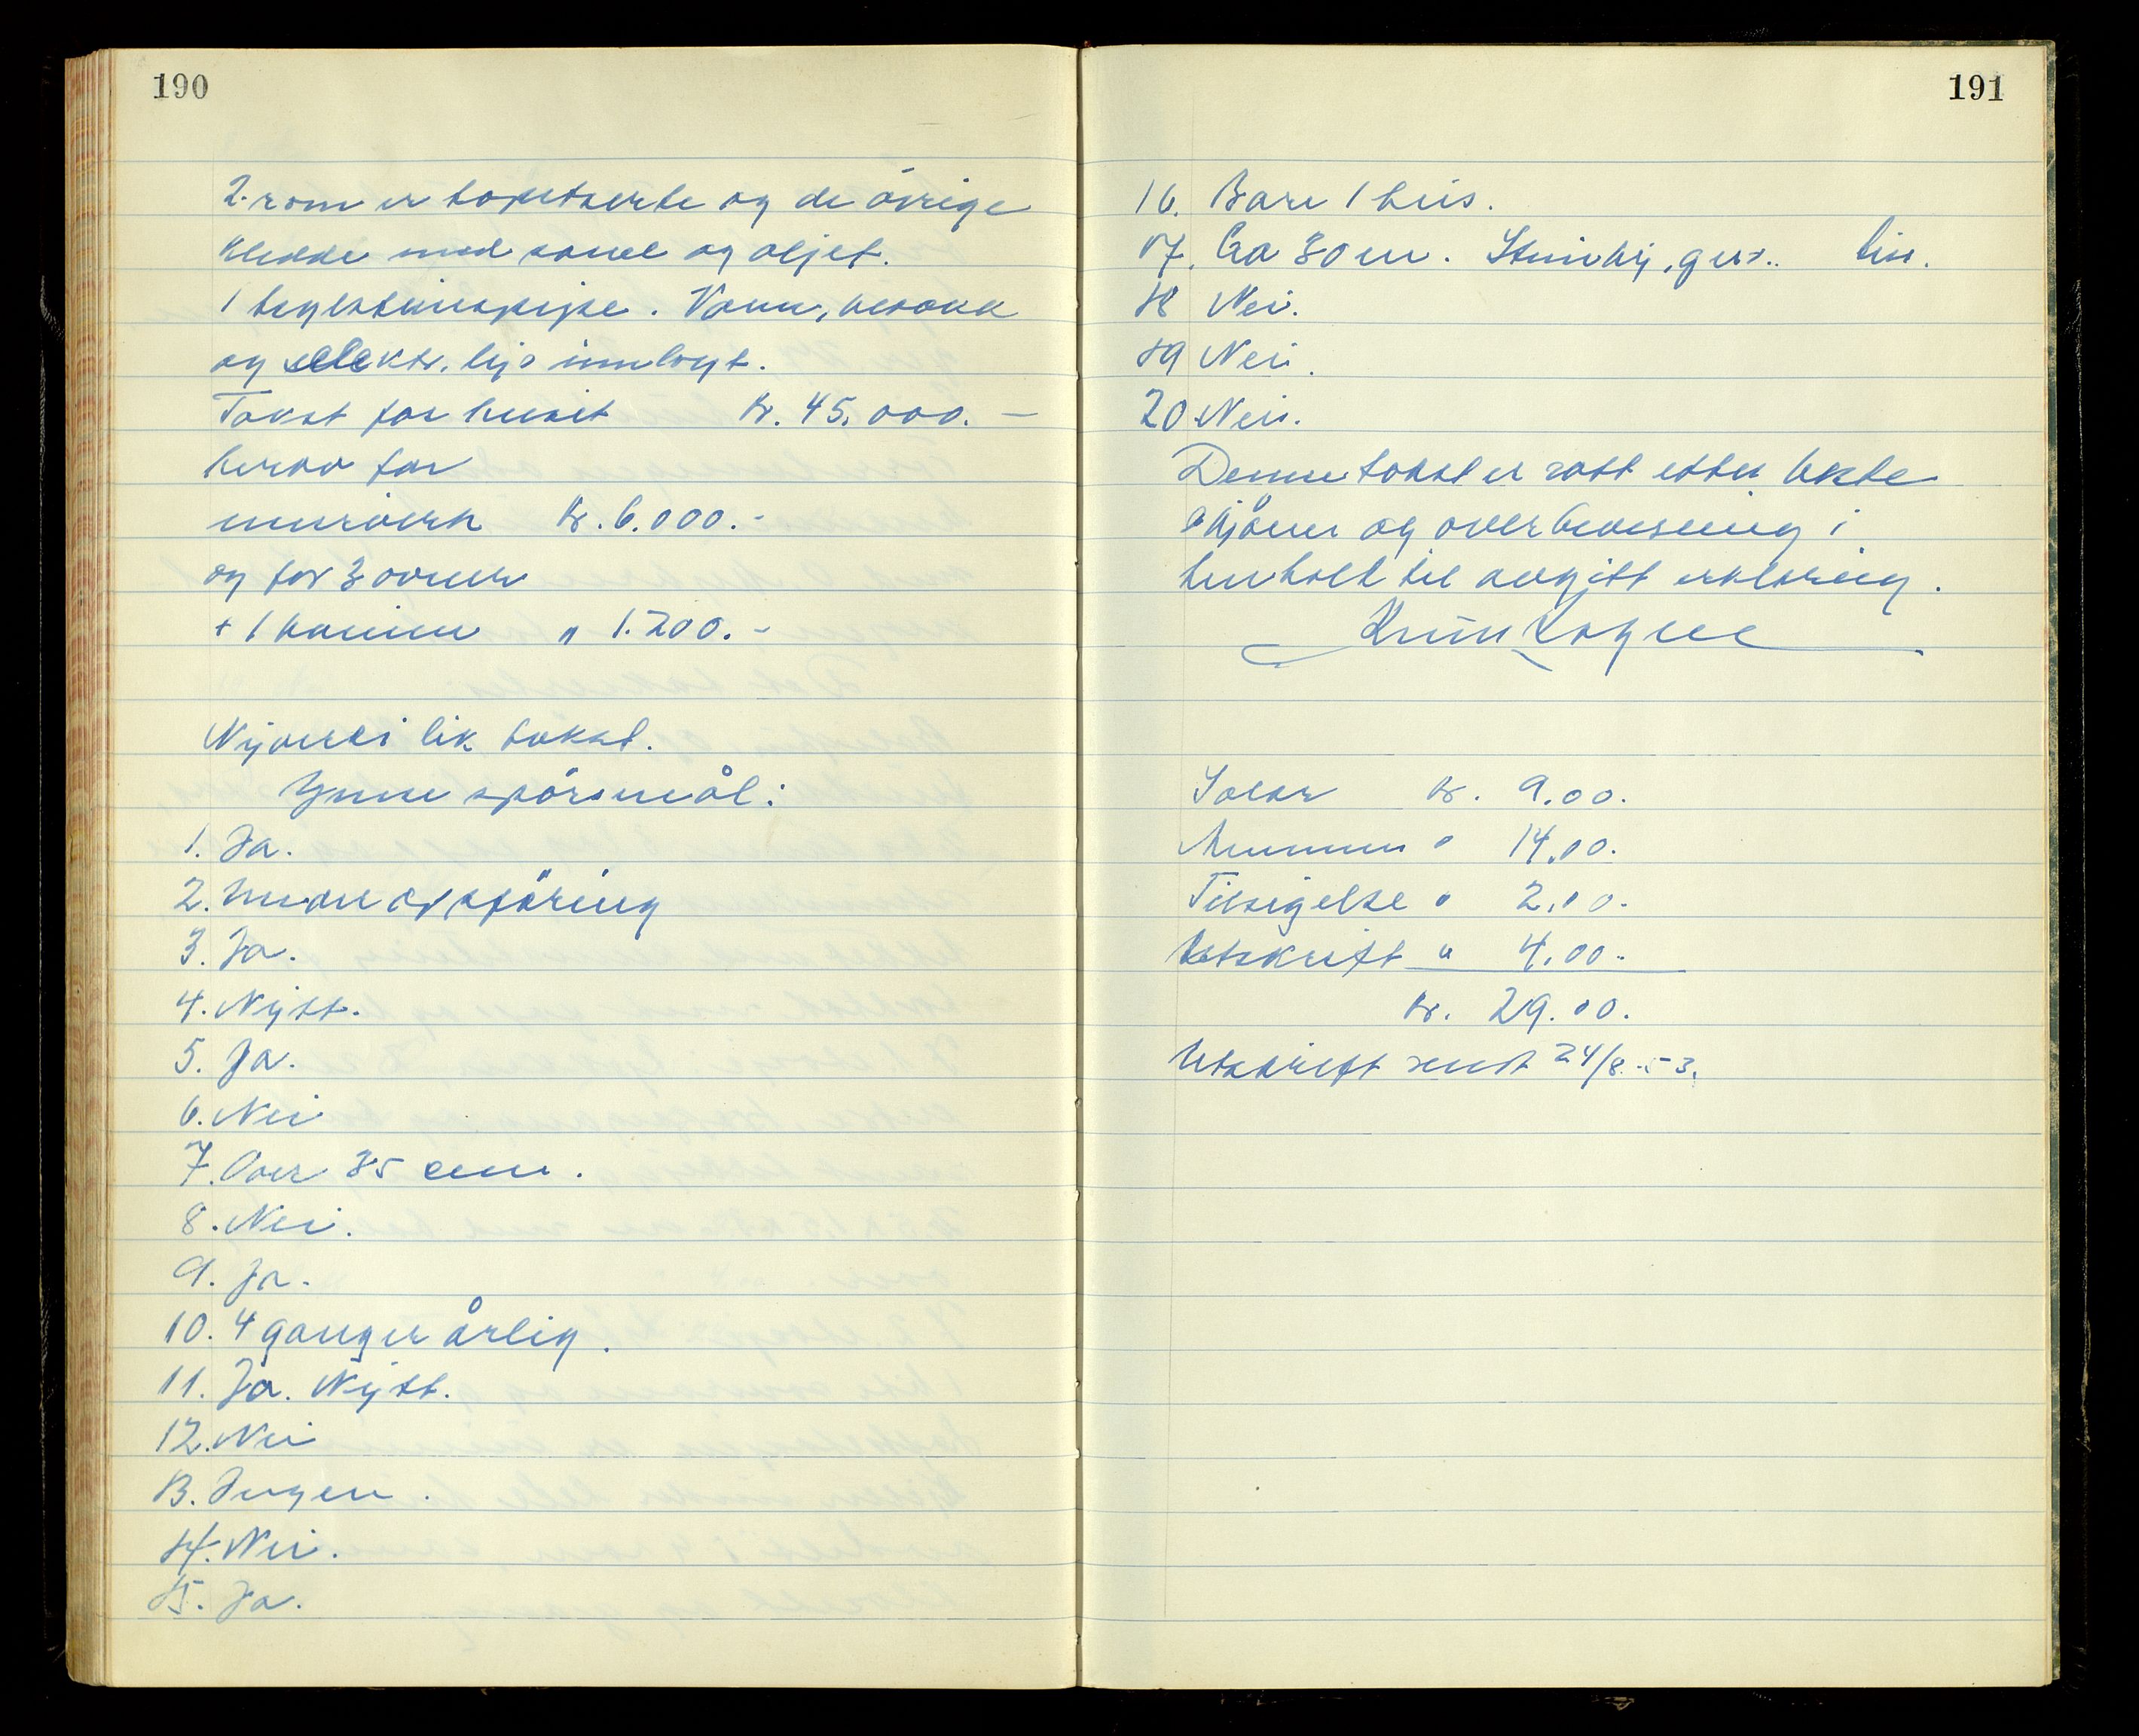 190
2 rom er tapetserte og de övrige
kledde med panel og oljet.
1 teglsteinspipe. Vann, kloakk
og elektr. lys innlagt.
Takst for huset kr. 45.000. —
herav for
murverk kr. 6.000.-
og for 3 ovner
+ 1 kamin " 1.200.-
Nyverdi lik takst.
Ymse spörsmål:
1. Ja.
2. Under oppföring
3. Ja.
4. Nytt.
5. Ja.
6. Nei
7. Over 35 cm.
8. Nei.
9. Ja.
10. 4 ganger årlig.
11. Ja. Nytt.
12. Nei
13. Ingen.
14. Nei.
15. Ja.
191
16. Bare 1 hus.
17. Ca 30 m.
18 Nei.
19 Nei.
20 Nei.
Denne takst er satt etter beste
skjönn og overbevisning i
henhold til avgitt erklæring.
kr. 9.00.
" 14,00.
Tilsigelse " 2,00.
Utskrift " 4,00.
kr. 29.00.
Utskrift sendt 24/8.-53.